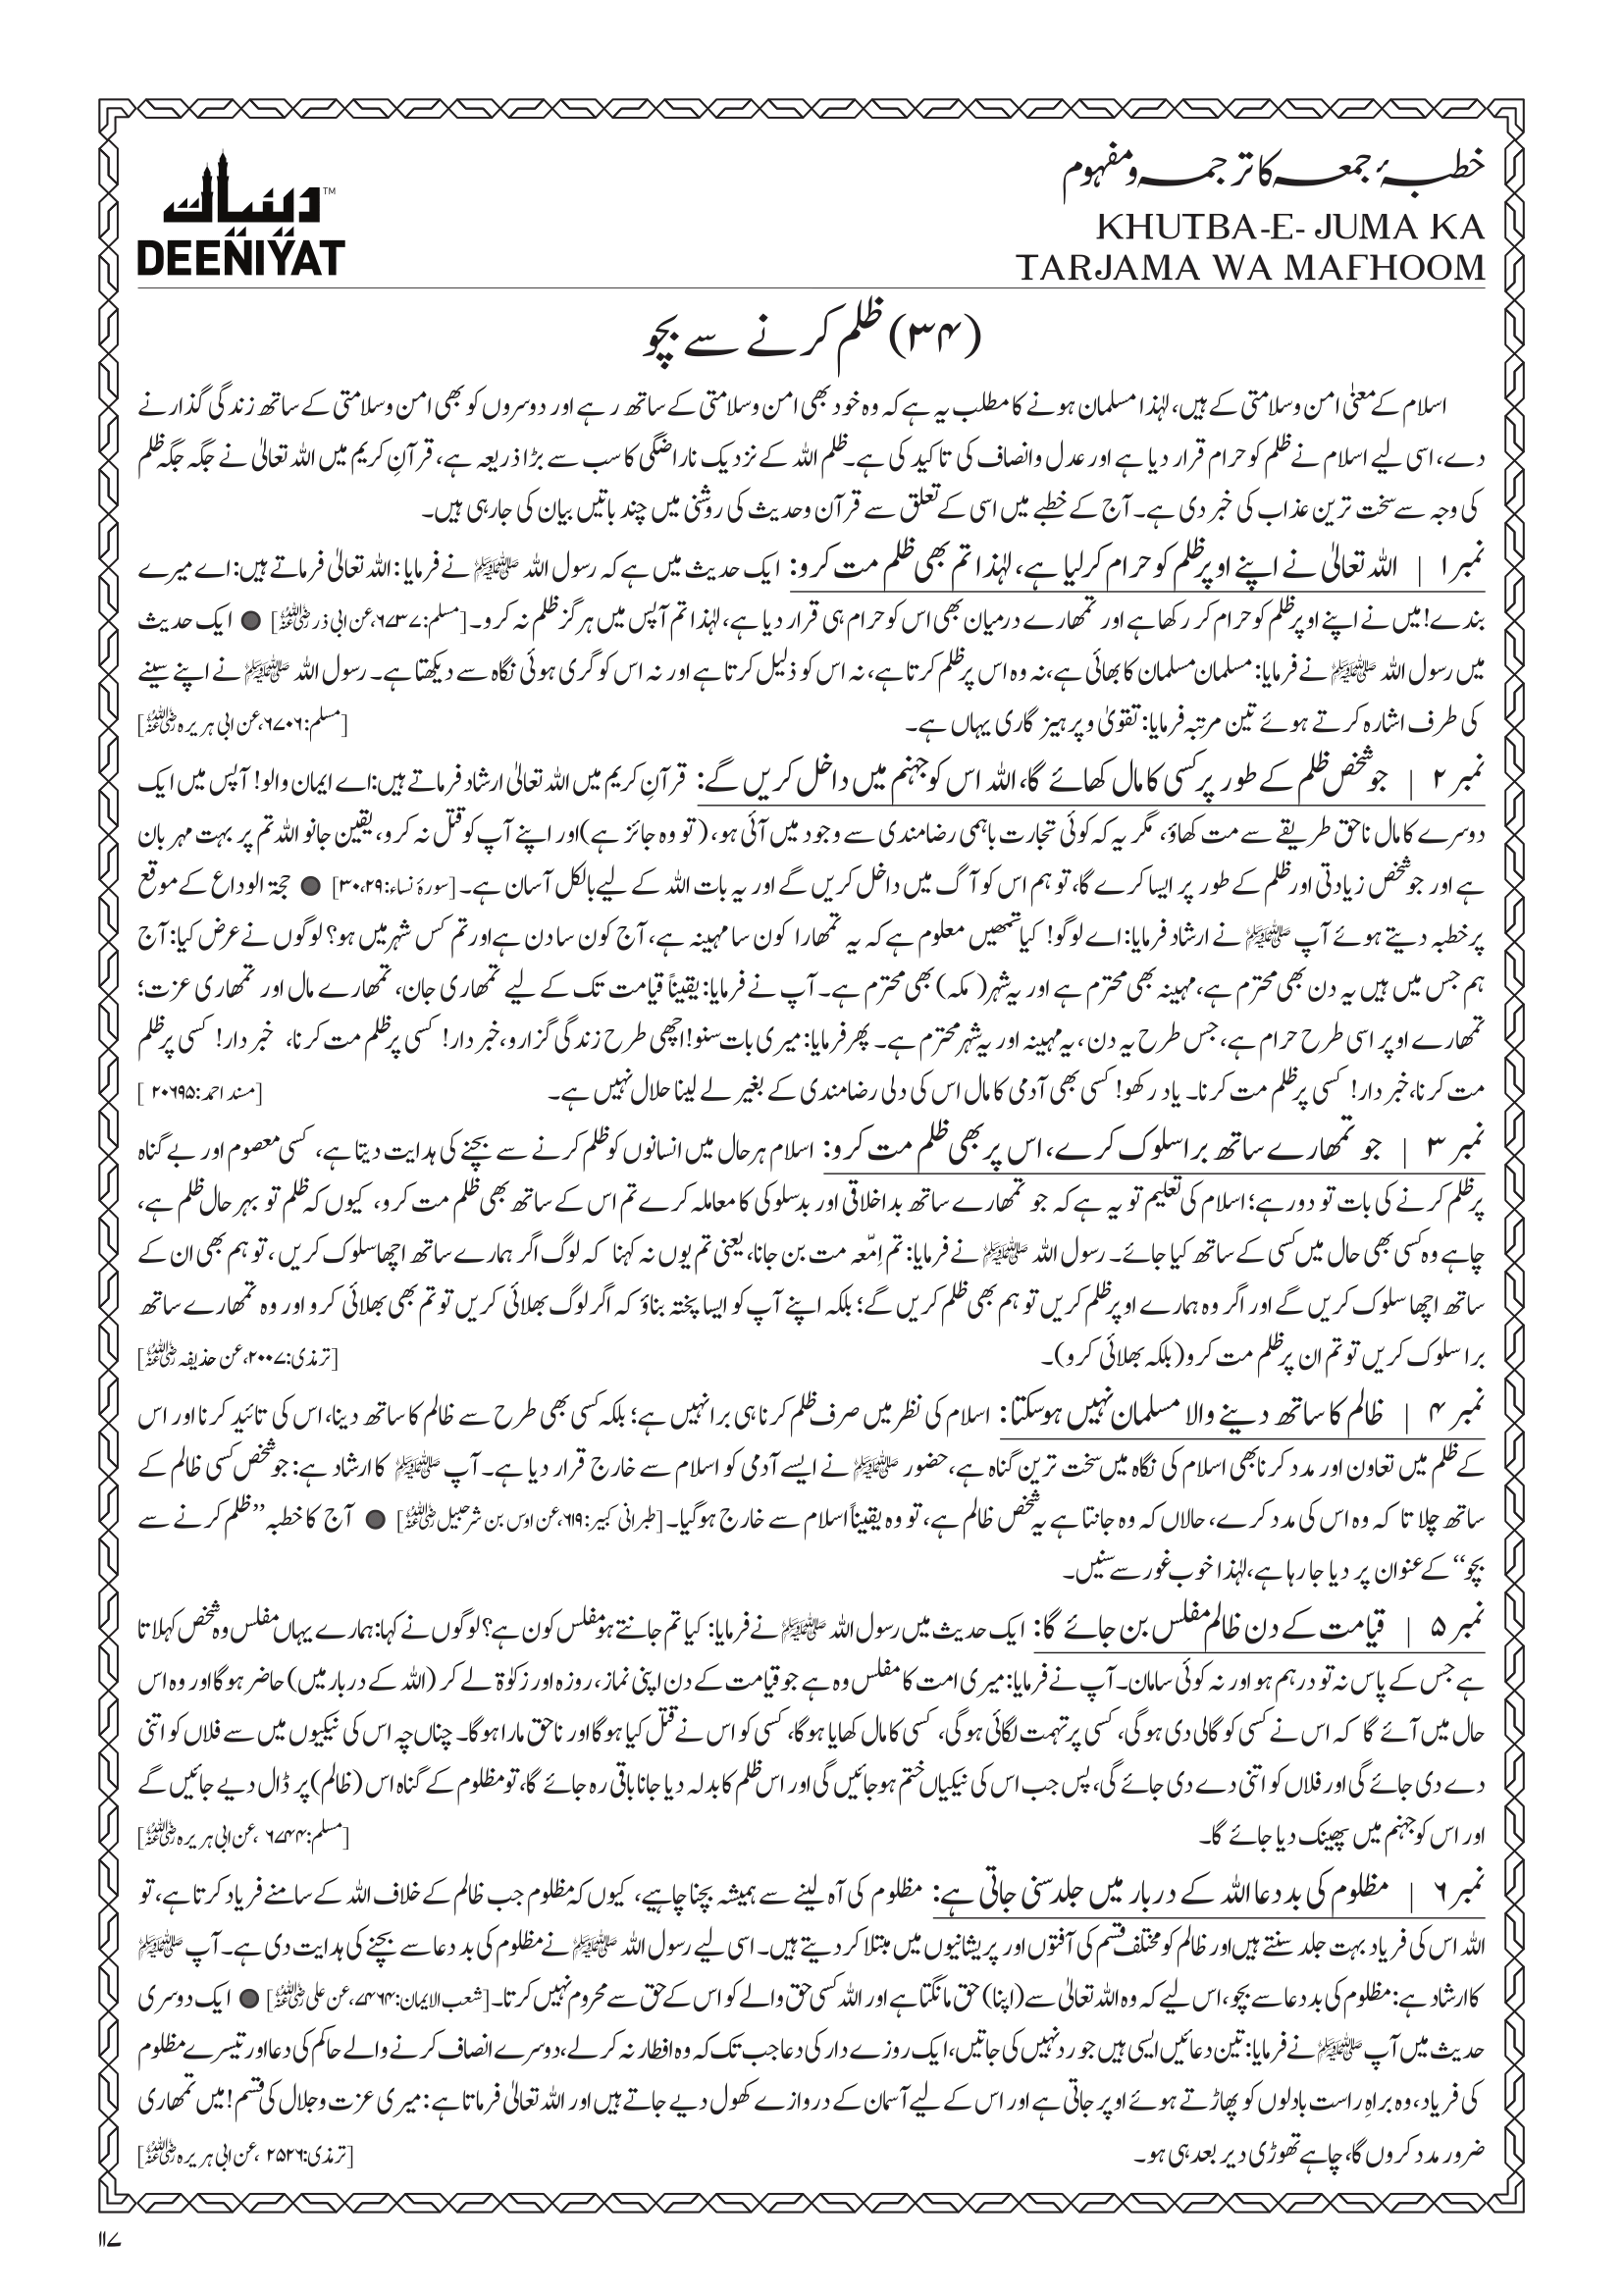 خطبۂ جمعہ کا ترجمہ ومفہوم
KHUTBA-E- JUMA KA
TARJAMA WA MAFHOOM
دینیات™
DEENIYAT
(۳۴) ظلم کرنے سے بچو
اسلام کے معنیٰ امن وسلامتی کے ہیں، لہٰذا مسلمان ہونے کا مطلب یہ ہے کہ وہ خود بھی امن وسلامتی کے ساتھ رہے اور دوسروں کو بھی امن وسلامتی کے ساتھ زندگی گذارنے
دے، اسی لیے اسلام نے ظلم کو حرام قرار دیا ہے اور عدل وانصاف کی تاکید کی ہے۔ ظلم اللہ کے نزدیک ناراضگی کا سب سے بڑا ذریعہ ہے، قرآنِ کریم میں اللہ تعالیٰ نے جگہ جگہ ظلم
کی وجہ سے سخت ترین عذاب کی خبر دی ہے۔ آج کے خطبے میں اسی کے تعلق سے قرآن وحدیث کی روشنی میں چند باتیں بیان کی جارہی ہیں۔
نمبر ۱ | اللہ تعالیٰ نے اپنے اوپر ظلم کو حرام کرلیا ہے، لہٰذا تم بھی ظلم مت کرو: ایک حدیث میں ہے کہ رسول اللہ ﷺ نے فرمایا: اللہ تعالیٰ فرماتے ہیں: اے میرے
بندے! میں نے اپنے اوپر ظلم کو حرام کر رکھا ہے اور تمھارے درمیان بھی اس کو حرام ہی قرار دیا ہے، لہٰذا تم آپس میں ہرگز ظلم نہ کرو۔ [مسلم: ۶۷۳۷، عن ابی ذر رضی اللہ عنہ] ● ایک حدیث
میں رسول اللہ ﷺ نے فرمایا: مسلمان مسلمان کا بھائی ہے، نہ وہ اس پر ظلم کرتا ہے، نہ اس کو ذلیل کرتا ہے اور نہ اس کو گری ہوئی نگاہ سے دیکھتا ہے۔ رسول اللہ ﷺ نے اپنے سینے
کی طرف اشارہ کرتے ہوئے تین مرتبہ فرمایا: تقویٰ وپرہیزگاری یہاں ہے۔ [مسلم: ۶۷۰۶، عن ابی ہریرہ رضی اللہ عنہ]
نمبر ۲ | جو شخص ظلم کے طور پر کسی کا مال کھائے گا، اللہ اس کو جہنم میں داخل کریں گے: قرآنِ کریم میں اللہ تعالیٰ ارشاد فرماتے ہیں: اے ایمان والو! آپس میں ایک
دوسرے کا مال ناحق طریقے سے مت کھاؤ، مگر یہ کہ کوئی تجارت باہمی رضامندی سے وجود میں آئی ہو، (تو وہ جائز ہے) اور اپنے آپ کو قتل نہ کرو، یقین جانو اللہ تم پر بہت مہربان
ہے اور جو شخص زیادتی اور ظلم کے طور پر ایسا کرے گا، تو ہم اس کو آگ میں داخل کریں گے اور یہ بات اللہ کے لیے بالکل آسان ہے۔ [سورۂ نساء: ۲۹، ۳۰] ● حجۃ الوداع کے موقع
پر خطبہ دیتے ہوئے آپ ﷺ نے ارشاد فرمایا: اے لوگو! کیا تمھیں معلوم ہے کہ یہ تمھارا کون سا مہینہ ہے، آج کون سا دن ہے اور تم کس شہر میں ہو؟ لوگوں نے عرض کیا: آج
ہم جس میں ہیں یہ دن بھی محترم ہے، مہینہ بھی محترم ہے اور یہ شہر (مکہ) بھی محترم ہے۔ آپ نے فرمایا: یقیناً قیامت تک کے لیے تمھاری جان، تمھارے مال اور تمھاری عزت؛
تمھارے اوپر اسی طرح حرام ہے، جس طرح یہ دن، یہ مہینہ اور یہ شہر محترم ہے۔ پھر فرمایا: میری بات سنو! اچھی طرح زندگی گزارو، خبردار! کسی پر ظلم مت کرنا، خبردار! کسی پر ظلم
مت کرنا، خبردار! کسی پر ظلم مت کرنا۔ یاد رکھو! کسی بھی آدمی کا مال اس کی دلی رضامندی کے بغیر لے لینا حلال نہیں ہے۔ [مسند احمد: ۲۰۶۹۵]
نمبر ۳ | جو تمھارے ساتھ برا سلوک کرے، اس پر بھی ظلم مت کرو: اسلام ہر حال میں انسانوں کو ظلم کرنے سے بچنے کی ہدایت دیتا ہے، کسی معصوم اور بے گناہ
پر ظلم کرنے کی بات تو دور ہے؛ اسلام کی تعلیم تو یہ ہے کہ جو تمھارے ساتھ بداخلاقی اور بدسلوکی کا معاملہ کرے تم اس کے ساتھ بھی ظلم مت کرو، کیوں کہ ظلم تو بہر حال ظلم ہے،
چاہے وہ کسی بھی حال میں کسی کے ساتھ کیا جائے۔ رسول اللہ ﷺ نے فرمایا: تم اِمّعہ مت بن جانا، یعنی تم یوں نہ کہنا کہ لوگ اگر ہمارے ساتھ اچھا سلوک کریں، تو ہم بھی ان کے
ساتھ اچھا سلوک کریں گے اور اگر وہ ہمارے اوپر ظلم کریں تو ہم بھی ظلم کریں گے؛ بلکہ اپنے آپ کو ایسا پختہ بناؤ کہ اگر لوگ بھلائی کریں تو تم بھی بھلائی کرو اور وہ تمھارے ساتھ
برا سلوک کریں تو تم ان پر ظلم مت کرو (بلکہ بھلائی کرو)۔ [ترمذی: ۲۰۰۷، عن حذیفہ رضی اللہ عنہ]
نمبر ۴ | ظالم کا ساتھ دینے والا مسلمان نہیں ہوسکتا: اسلام کی نظر میں صرف ظلم کرنا ہی برا نہیں ہے؛ بلکہ کسی بھی طرح سے ظالم کا ساتھ دینا، اس کی تائید کرنا اور اس
کے ظلم میں تعاون اور مدد کرنا بھی اسلام کی نگاہ میں سخت ترین گناہ ہے، حضور ﷺ نے ایسے آدمی کو اسلام سے خارج قرار دیا ہے۔ آپ ﷺ کا ارشاد ہے: جو شخص کسی ظالم کے
ساتھ چلا تا کہ وہ اس کی مدد کرے، حالاں کہ وہ جانتا ہے یہ شخص ظالم ہے، تو وہ یقیناً اسلام سے خارج ہوگیا۔ [طبرانی کبیر: ۶۱۹، عن اوس بن شرحبیل رضی اللہ عنہ] ● آج کا خطبہ ”ظلم کرنے سے
بچو“ کے عنوان پر دیا جارہا ہے، لہٰذا خوب غور سے سنیں۔
نمبر ۵ | قیامت کے دن ظالم مفلس بن جائے گا: ایک حدیث میں رسول اللہ ﷺ نے فرمایا: کیا تم جانتے ہو مفلس کون ہے؟ لوگوں نے کہا: ہمارے یہاں مفلس وہ شخص کہلاتا
ہے جس کے پاس نہ تو درہم ہو اور نہ کوئی سامان۔ آپ نے فرمایا: میری امت کا مفلس وہ ہے جو قیامت کے دن اپنی نماز، روزہ اور زکوٰۃ لے کر (اللہ کے دربار میں) حاضر ہوگا اور وہ اس
حال میں آئے گا کہ اس نے کسی کو گالی دی ہوگی، کسی پر تہمت لگائی ہوگی، کسی کا مال کھایا ہوگا، کسی کو اس نے قتل کیا ہوگا اور ناحق مارا ہوگا۔ چناں چہ اس کی نیکیوں میں سے فلاں کو اتنی
دے دی جائے گی اور فلاں کو اتنی دے دی جائے گی، پس جب اس کی نیکیاں ختم ہوجائیں گی اور اس ظلم کا بدلہ دیا جانا باقی رہ جائے گا، تو مظلوم کے گناہ اس (ظالم) پر ڈال دیے جائیں گے
اور اس کو جہنم میں پھینک دیا جائے گا۔ [مسلم: ۶۷۴۴، عن ابی ہریرہ رضی اللہ عنہ]
نمبر ۶ | مظلوم کی بددعا اللہ کے دربار میں جلد سنی جاتی ہے: مظلوم کی آہ لینے سے ہمیشہ بچنا چاہیے، کیوں کہ مظلوم جب ظالم کے خلاف اللہ کے سامنے فریاد کرتا ہے، تو
اللہ اس کی فریاد بہت جلد سنتے ہیں اور ظالم کو مختلف قسم کی آفتوں اور پریشانیوں میں مبتلا کردیتے ہیں۔ اسی لیے رسول اللہ ﷺ نے مظلوم کی بددعا سے بچنے کی ہدایت دی ہے۔ آپ ﷺ
کا ارشاد ہے: مظلوم کی بددعا سے بچو، اس لیے کہ وہ اللہ تعالیٰ سے (اپنا) حق مانگتا ہے اور اللہ کسی حق والے کو اس کے حق سے محروم نہیں کرتا۔ [شعب الایمان: ۷۴۶۴، عن علی رضی اللہ عنہ] ● ایک دوسری
حدیث میں آپ ﷺ نے فرمایا: تین دعائیں ایسی ہیں جو رد نہیں کی جاتیں، ایک روزے دار کی دعا جب تک کہ وہ افطار نہ کرلے، دوسرے انصاف کرنے والے حاکم کی دعا اور تیسرے مظلوم
کی فریاد، وہ براہِ راست بادلوں کو پھاڑتے ہوئے اوپر جاتی ہے اور اس کے لیے آسمان کے دروازے کھول دیے جاتے ہیں اور اللہ تعالیٰ فرماتا ہے: میری عزت وجلال کی قسم! میں تمھاری
ضرور مدد کروں گا، چاہے تھوڑی دیر بعد ہی ہو۔ [ترمذی: ۲۵۲۶، عن ابی ہریرہ رضی اللہ عنہ]
۱۱۷